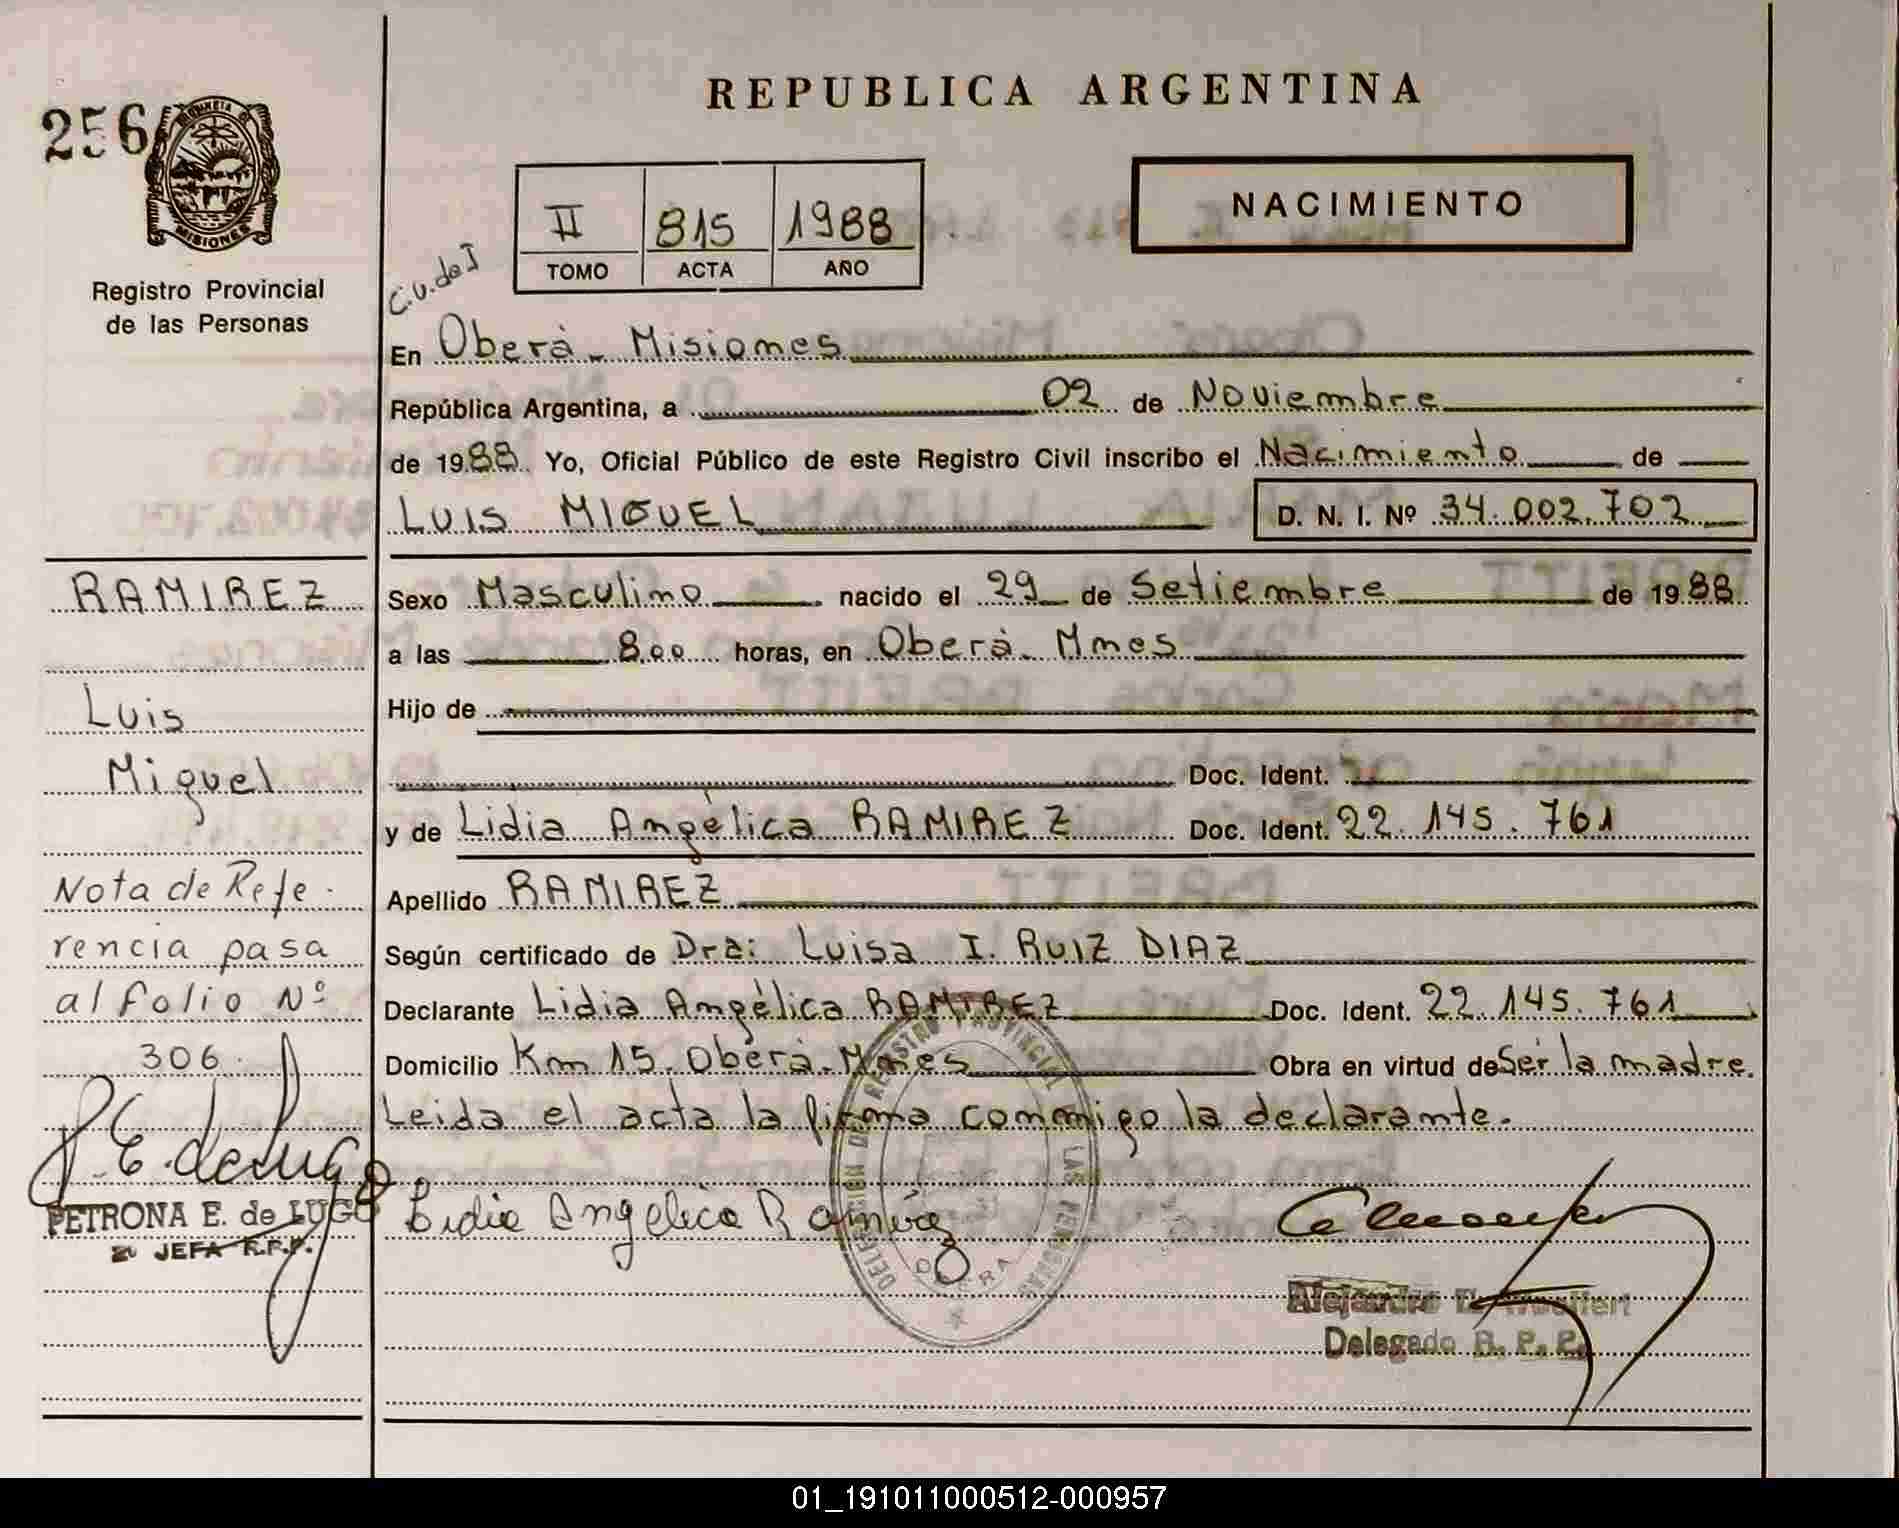 REPUBLICA ARGENTINA
256
PROVINCIA D
MISIONES
Registro Provincial
de las Personas
II 815 1988
TOMO ACTA AÑO
NACIMIENTO
C.U. de I
En Oberá - Misiones
República Argentina, a 02 de Noviembre
de 1988 Yo, Oficial Público de este Registro Civil inscribo el Nacimiento de
LUIS MIGUEL D. N. I. Nº 34.002.702
RAMIREZ
Luis
Miguel
Nota de Refe-
rencia pasa
al folio Nº
306.
P. E. de Lugo
PETRONA E. de LUGO
JEFA R.P.P.
Sexo Masculino nacido el 29 de Setiembre de 1988
a las 8.00 horas, en Oberá - Mnes
Hijo de
Doc. Ident.
y de Lidia Angélica RAMIREZ Doc. Ident. 22.145.761
Apellido RAMIREZ
Según certificado de Dra: Luisa I. RUIZ DIAZ
Declarante Lidia Angélica RAMIREZ Doc. Ident. 22.145.761
Domicilio Km 15. Oberá. Mnes Obra en virtud de Ser la madre.
Leida el acta la firma conmigo la declarante.
Lidia Angelica Ramirez
DELEGACION DEL REGISTRO PROVINCIAL DE LAS PERSONAS
OBERA
Alejandro
Delegado R. P. P.
01_191011000512-000957